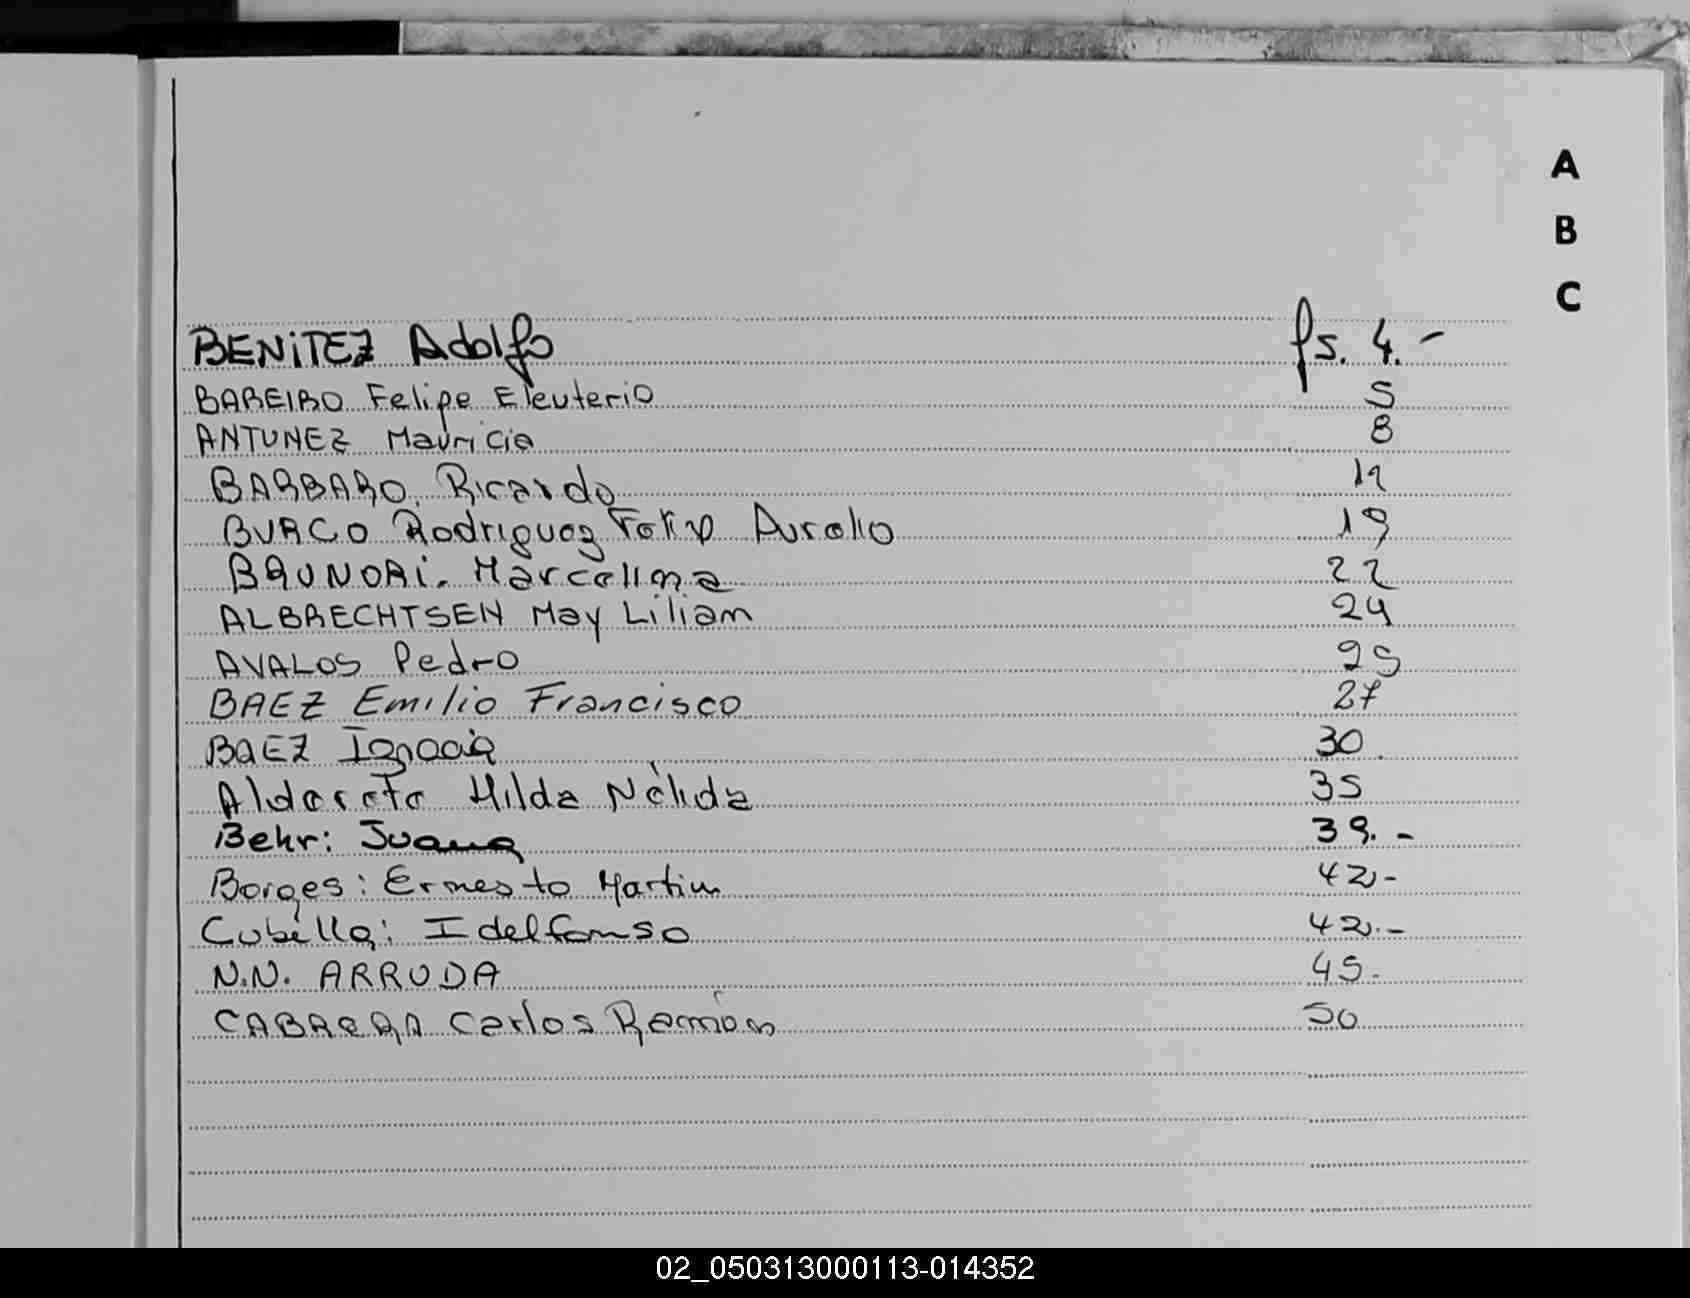 A
B
C
BENITEZ Adolfo fs. 4.-
BAREIRO Felipe Eleuterio 5
ANTUNEZ Mauricia 8
BARBARO Ricardo 12
BURCO Rodriguez Aurelio 19
BRUNORI. Marcelina 22
ALBRECHTSEN May Liliam 24
AVALOS Pedro 25
BAEZ Emilio Francisco 27
BAEZ Ignacia 30
Alderete Hilda Nélida 35
Behr: Juana 39.-
Borges: Ernesto Martin 42-
Cubilla: Idelfonso 42.-
N.N. ARRUDA 45.
CABRERA Carlos Ramón 50
02_050313000113-014352